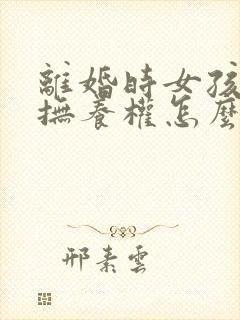 離婚時女孩
撫養權怎麼
邢素雲